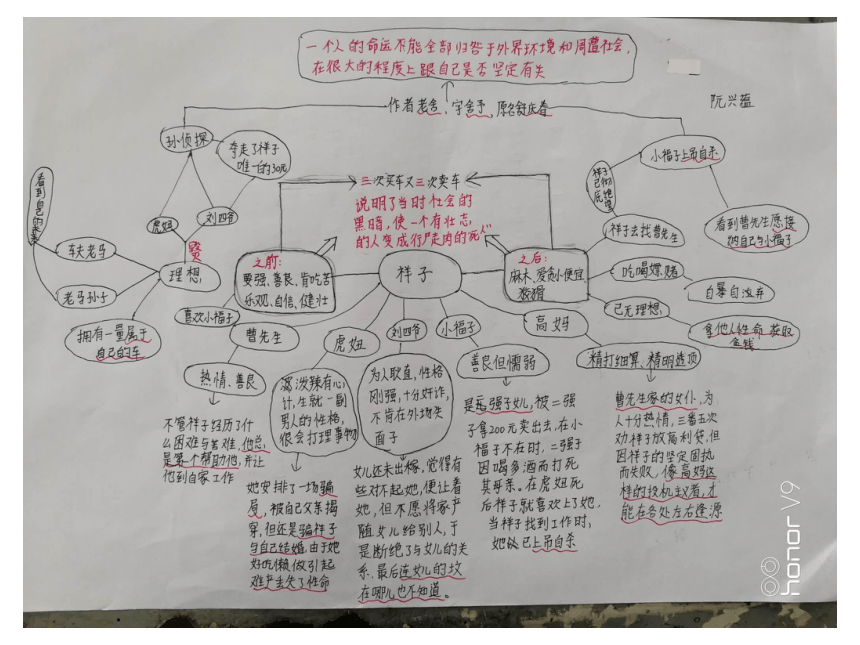 一个人的命运不能全部归咎于外界环境和周遭社会,
在很大的程度上跟自己是否坚定有关
作者老舍,字舍予,原名舒庆春
阮兴蕴
孙侦探
夺走了祥子
唯一的30元
虎妞
刘四爷
看到自己的未来
车夫老马
老马孙子
理想
拥有一量属于
自己的车
三次买车又三次卖车
说明了当时社会的
黑暗,使一个有壮志,
的人变成行尸走肉的"死人"
之前:
要强、善良、肯吃苦
乐观、自信、健壮
祥子
之后:
麻木、爱贪小便宜
狡猾
小福子上吊自杀
祥子
已彻
底绝
望
祥子去找曹先生
看到曹先生愿接
纳自己与小福子
吃喝嫖赌
自暴自弃
已无理想,
拿他人性命获取
金钱
喜欢小福子
曹先生
热情、善良
不管祥子经历了什
么困难与苦难,他总
是第一个帮助他,并让
他到自家工作
虎妞
泼辣有心
计,生就一副
男人的性格,
很会打理事物
她安排了一场骗
局,被自己父亲揭
穿,但还是骗祥子
与自己结婚,由于她
好吃懒做引起
难产丢失了性命
刘四爷
为人耿直,性格
刚强,十分奸诈,
不肯在外场失
面子
女儿还未出嫁,觉得有
些对不起她,便让着
她,但不愿将家产
随女儿给别人,于
是断绝了与女儿的关
系,最后连女儿的坟
在哪儿也不知道。
小福子
善良但懦弱
是二强子女儿,被二强
子拿200元卖出去,在小
福子不在时,二强子
因喝多酒而打死
其母亲,在虎妞死
后祥子就喜欢上了她,
当祥子找到工作时,
她已上吊自杀
高妈
精打细算、精明透顶
曹先生家的女仆,为
人十分热情,三番五次
劝祥子放高利贷,但
因祥子的坚定固执
而失败,像高妈这
样的投机主义者,才
能在各处左右逢源
honor V9